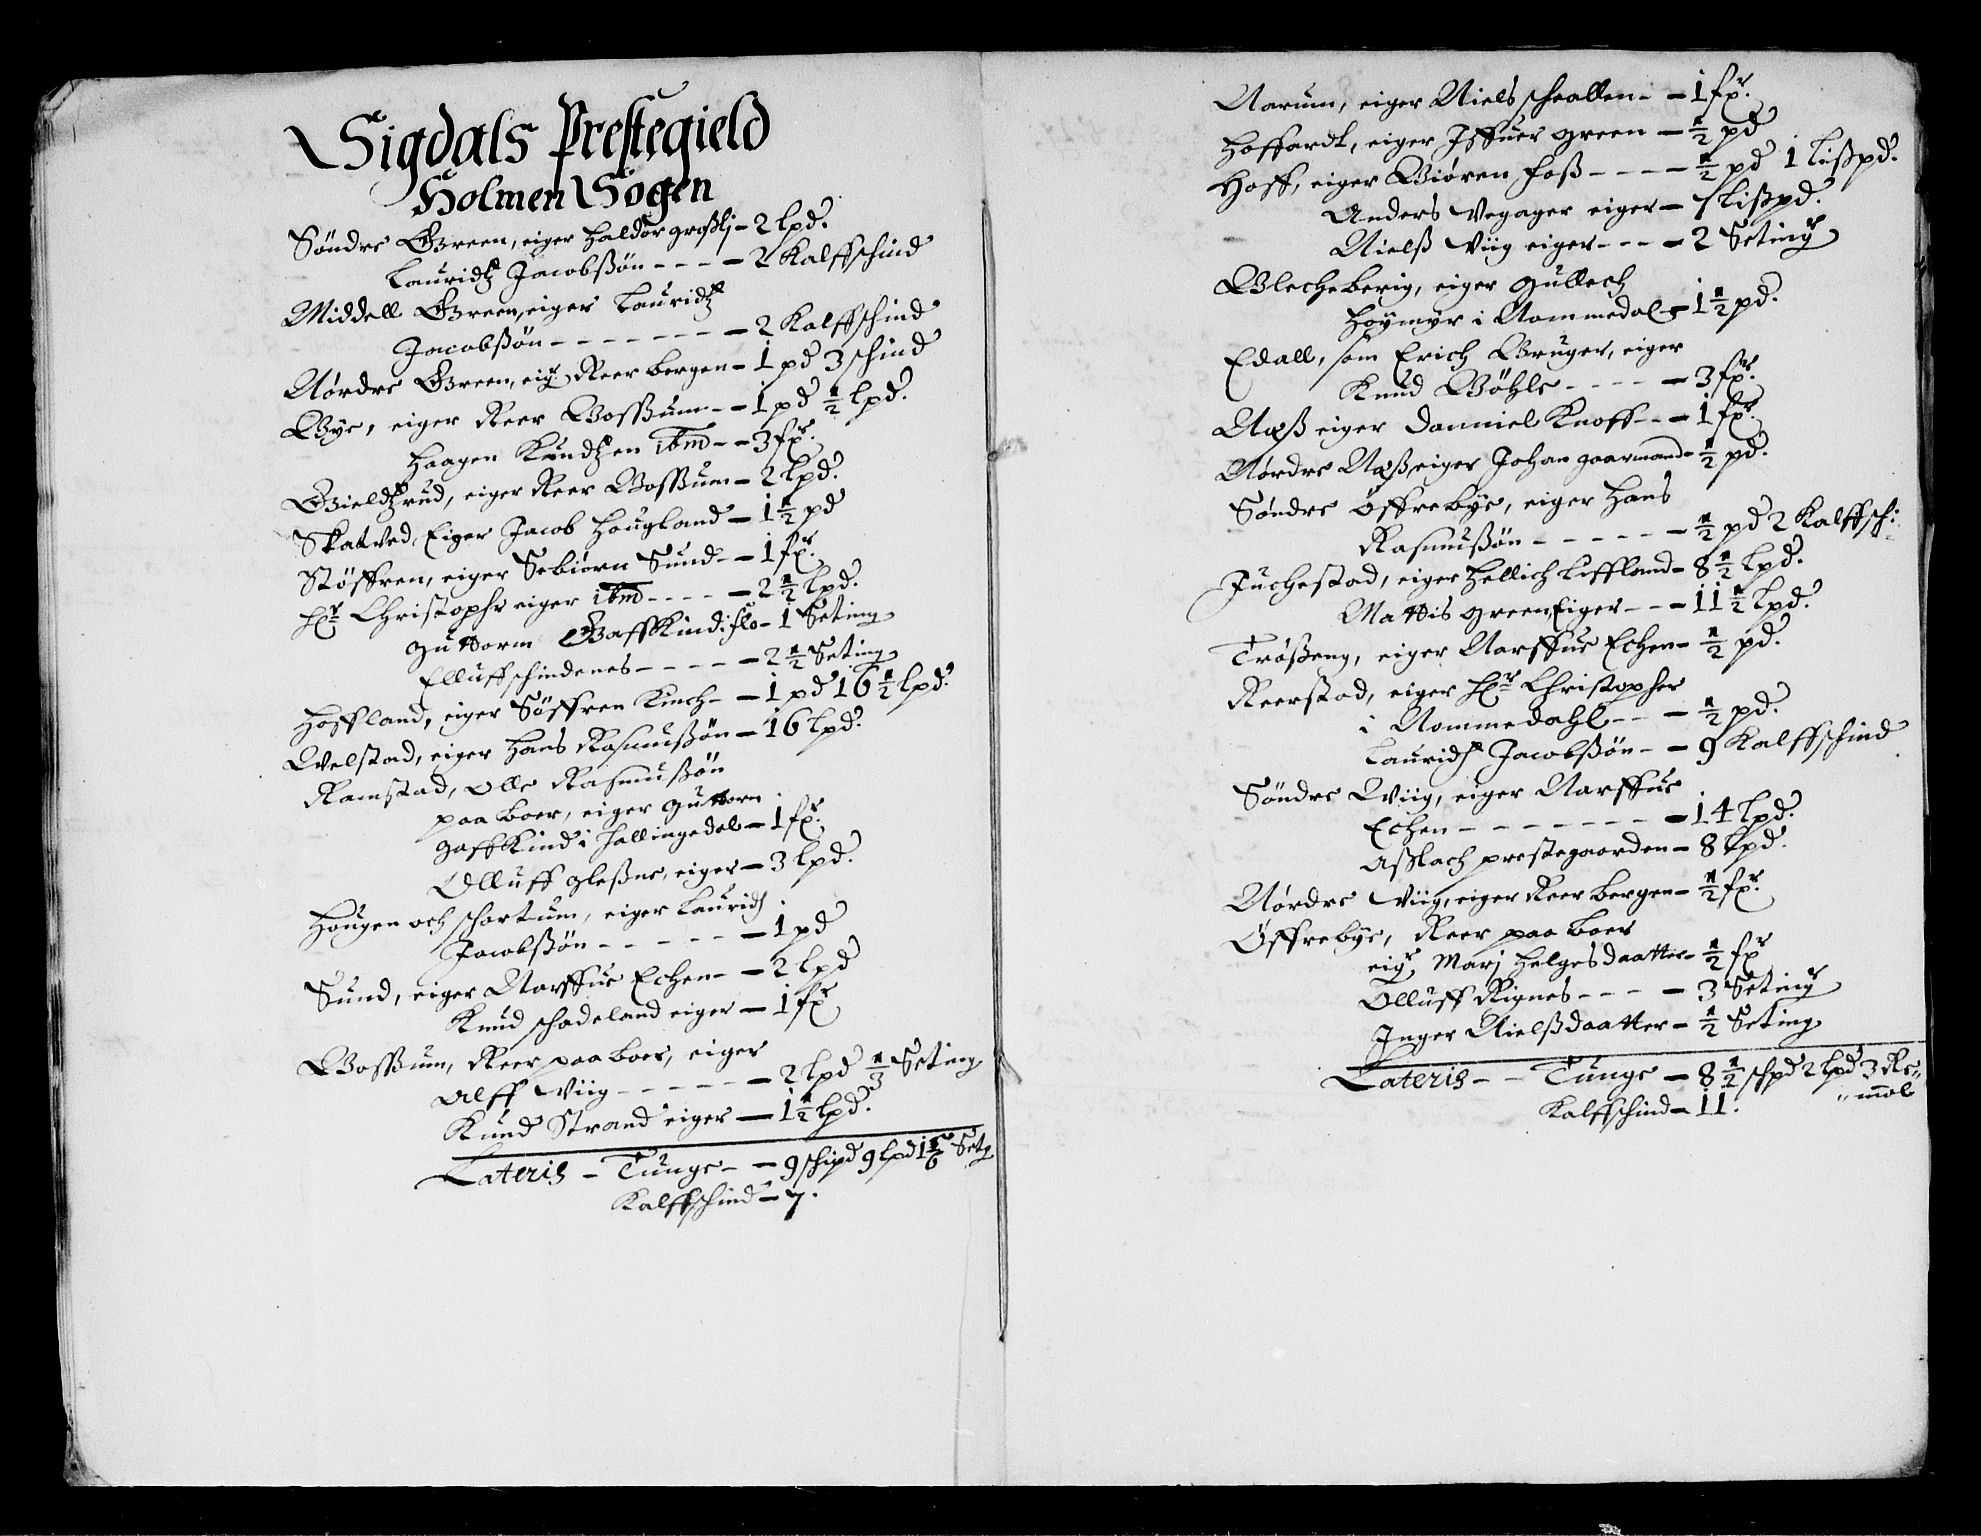 Sigdals Prestegield
Holmen Sogen
Søndre Green, eiger Haldor großlj – 2 lpd.
Lauridtz Jacobßøn – – – – 2 Kalffschind
Middell Green, eiger Lauridtz
Jacobßøn – – – – – – – 2 Kalffschind
Nørdre Green, eigr. Reer bergen – 1 pd 3 schind
Bye, eiger Reer Boßßum – – 1 pd ½ lpd.
Haagen Kundtzen ibm – – 3 fxr.
Gieldtzrud, eiger Reer Boßßum – 2 lpd.
Skatved, Eiger Jacob Hougland – 1½ pd
Støffren, eiger Sebiørn Sund – – 1 fxr.
Hr Christopher eiger ibm – – – – 2½ lpd.
Guttorm Gaffkind – 1 Seting
Elluff schindenes – – – – 2½ Seting
Hoffland, eiger Søffren Kinch – – 1 pd 16½ lpd.
Velstad, eiger Hans Rasmußøn – 16 lpd.
Ramstad, Olle Rasmußøn
paa boer, eiger Guttorm
gaffkind i Hallingedal – 1 fxr.
Olluff gleßne, eiger – 3 lpd.
Hougen och schortum, eiger Lauridz
Jacobßøn – – – – – 1 pd
Sund, eiger Narffue Echen – – 2 lpd
Knud schadeland eiger – 1 fxr
Boßßum, Reer paa boer, eiger
Alff Viig – – – – – 2 lpd ⅓ Seting
Knud Strand eiger – 1½ lpd.
Lateris – Tunge – – 9 schipd 9 lpd 1⅚ Setg
Kalffschind – 7.
Narum, eiger Niels scheallen – – 1 fxr.
Hoffardt, eiger Iffuer green – ½ pd
Hoff, eiger Biøren foß – – – – ½ pd 1 lißpd.
Anders Vegager eiger – 1 lißpd.
Nielß Viig eiger – – – 2 Seting
Blecheberig, eiger Gullech
Høymyr i Nommedal – 1½ pd.
Edall, som Erich Bruger, eiger
Knud Bøhle – – – – – 3 fxr.
Næß eiger Danniel Knoff – – 1 fxr.
Nørdre Næß, eiger Johan gaarmand – ½ pd.
Søndre Øffrebye, eiger Hans
Rasmußøn – – – – – ½ pd 2 Kalffsch:
Juchestad, eiger Hellich Liffland – 8½ lpd.
Mattis green, Eiger – – – 11½ lpd.
Trøßeng, eiger Narffue Echen – ½ pd.
Reerstad, eiger Hr Christopher
i Nommedahl – – – ½ pd.
Lauridz Jacobßøn – – 9 Kalffschind
Søndre Viig, eiger Narffue
Echen – – – – – – – 14 lpd.
Aßlach prestegaarden – 8 lpd.
Nørdre Viig, eiger Reer bergen – ½ fxr.
Øffrebye, Reer paa boer
eigr, Marj Helgesdaatter – ½ fxr
Olluff Rignes – – – – 3 Seting
Inger Nielßdaatter – ½ Seting
Lateris – – Tunge – 8½ schpd 2 lpd 3 Re„
„mæl
Kalffschind – 11.